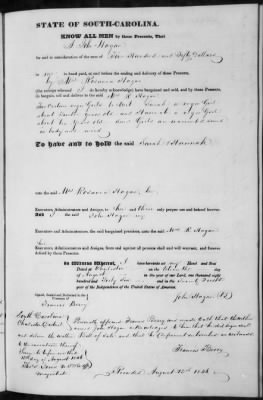 STATE OF SOUTH-CAROLINA.
KNOW ALL MEN by these Presents, That
I John Hagan
for and in consideration of the sum of Hundred and Fifty Dollars
To me in hand paid, at and before the sealing and delivery of these Presents,
by Mrs Rosanna Hagan
(the receipt whereof I do hereby acknowledge) have bargained and sold, and by these Presents,
do bargain, sell and deliver to the said Mrs R. Hagan
Two Certain negro Girls to wit Sarah a negro Girl
about years old and Hannah a negro Girl
about years old said Girls are warranted sound
in body and mind
To have and to hold the said Sarah & Hannah
unto the said Mrs Rosanna Hagan her
Executors, Administrators and Assigns, to her and their only proper use and behoof forever.
And I the said John Hagan my
Executors and Administrators, the said bargained premises, unto the said Mrs R. Hagan
her
Executors, Administrators and Assigns, from and against all persons shall and will warrant, and forever
defend by these Presents.
In Witness Whereof, I have hereunto set my Hand and Seal
Dated at Charleston on the day
of August in the year of our Lord, one thousand eight
hundred and Forty Six and in the Seventy
year of the Independence of the United States of America.
Signed, Sealed and Delivered in the
Presence of
John Hagan (LS)
Francis Berry
South Carolina
Charleston District
Personally appeared Francis Berry and made Oath that he
saw John Hagan
and deliver the within Bill of Sale and that he
Sworn to before me this
of August 1846
Francis Berry
Recorded August 12th 1846